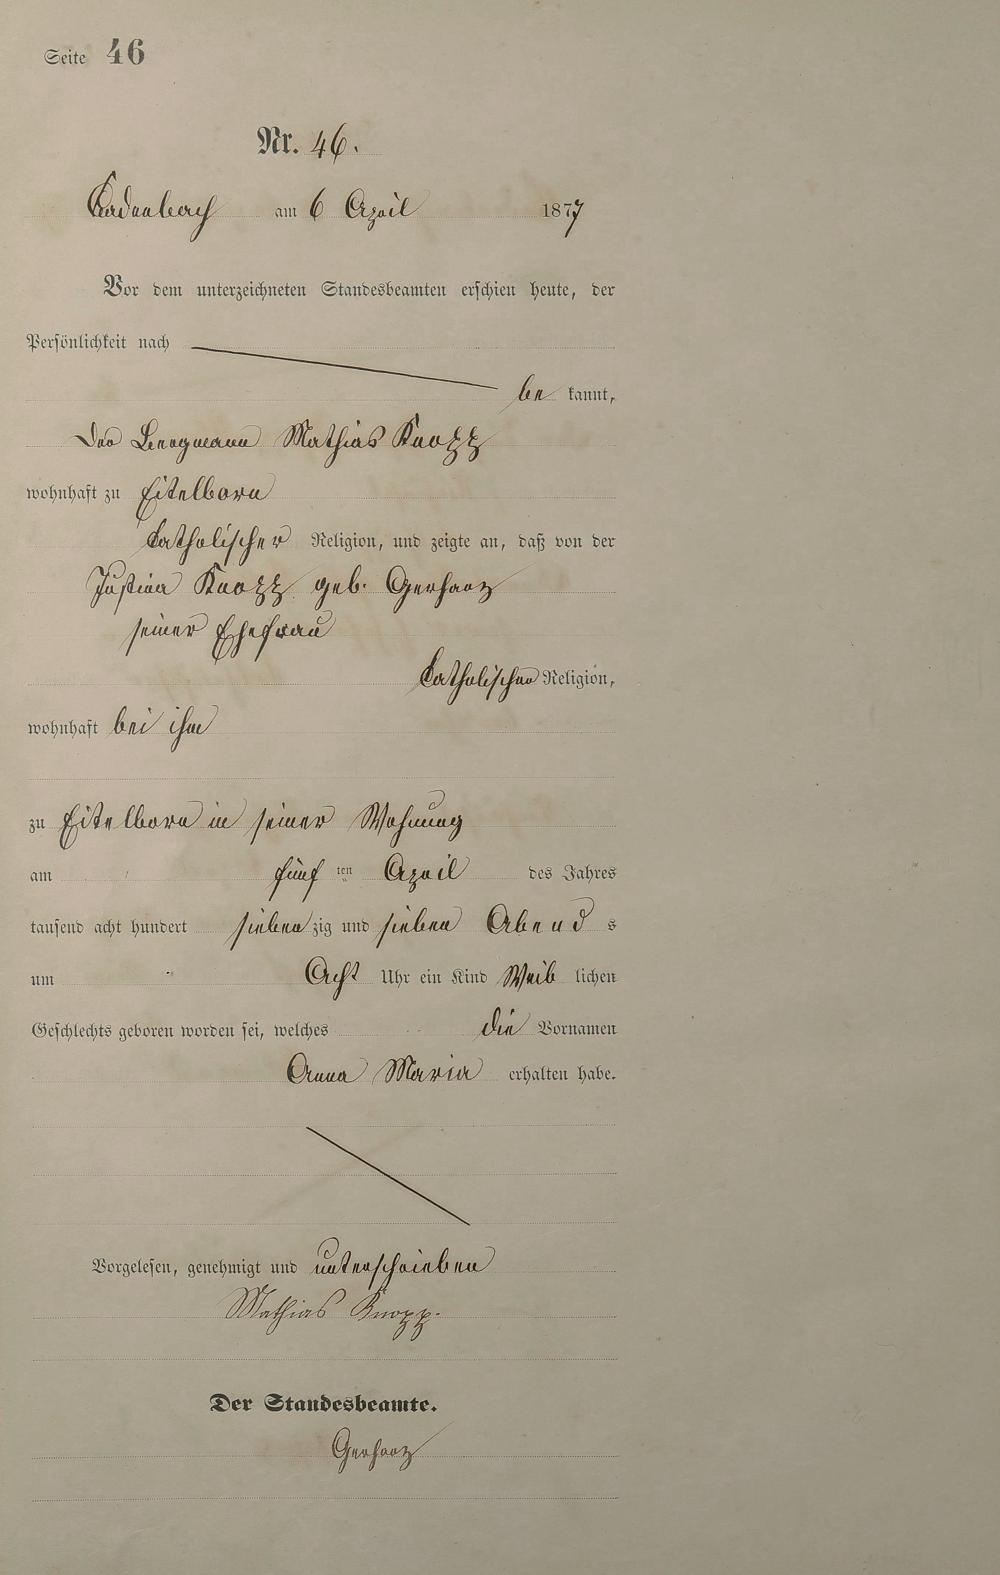 Seite 46
Nr. 46.
Cadenbach am 6 April 1877
Vor dem unterzeichneten Standesbeamten erschien heute, der
Persönlichkeit nach
be kannt,
Der Bergmann Mathias Knopp
wohnhaft zu Eitelborn
katholischer Religion, und zeigte an, daß von der
Justina Knopp geb. Gerharz
seiner Ehefrau
katholischer Religion,
wohnhaft bei ihm
zu Eitelborn in seiner Wohnung
am fünf ten April des Jahres
tausend acht hundert siebenzig und sieben Abend s
um Acht Uhr ein Kind Weib lichen
Geschlechts geboren worden sei, welches die Vornamen
Anna Maria erhalten habe.
Vorgelesen, genehmigt und unterschrieben
Mathias Knopp.
Der Standesbeamte.
Gerharz